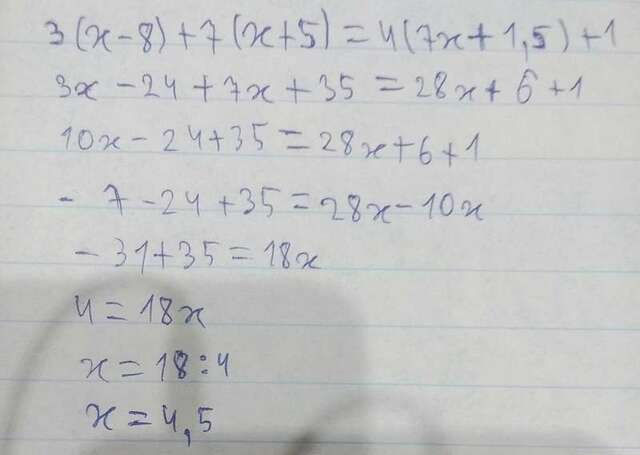 3(x-8)+7(x+5)=4(7x+1,5)+1
3x-24+7x+35=28x+6+1
10x-24+35=28x+6+1
-7-24+35=28x-10x
-31+35=18x
4=18x
x=18:4
x=4,5